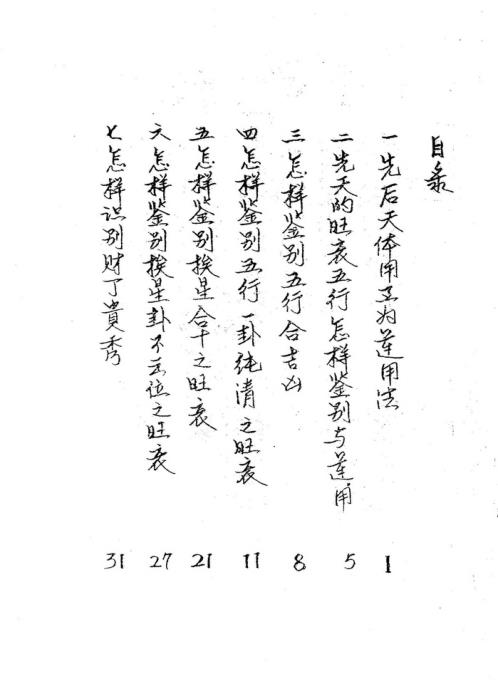 目录
一 先后天体用互为运用法 1
二 先天的旺衰五行怎样鉴别与运用 5
三 怎样鉴别五行合吉凶 8
四 怎样鉴别五行一卦纯清之旺衰 11
五 怎样鉴别挨星合十之旺衰 21
六 怎样鉴别挨星卦不云位之旺衰 27
七 怎样识别财丁貴秀 31